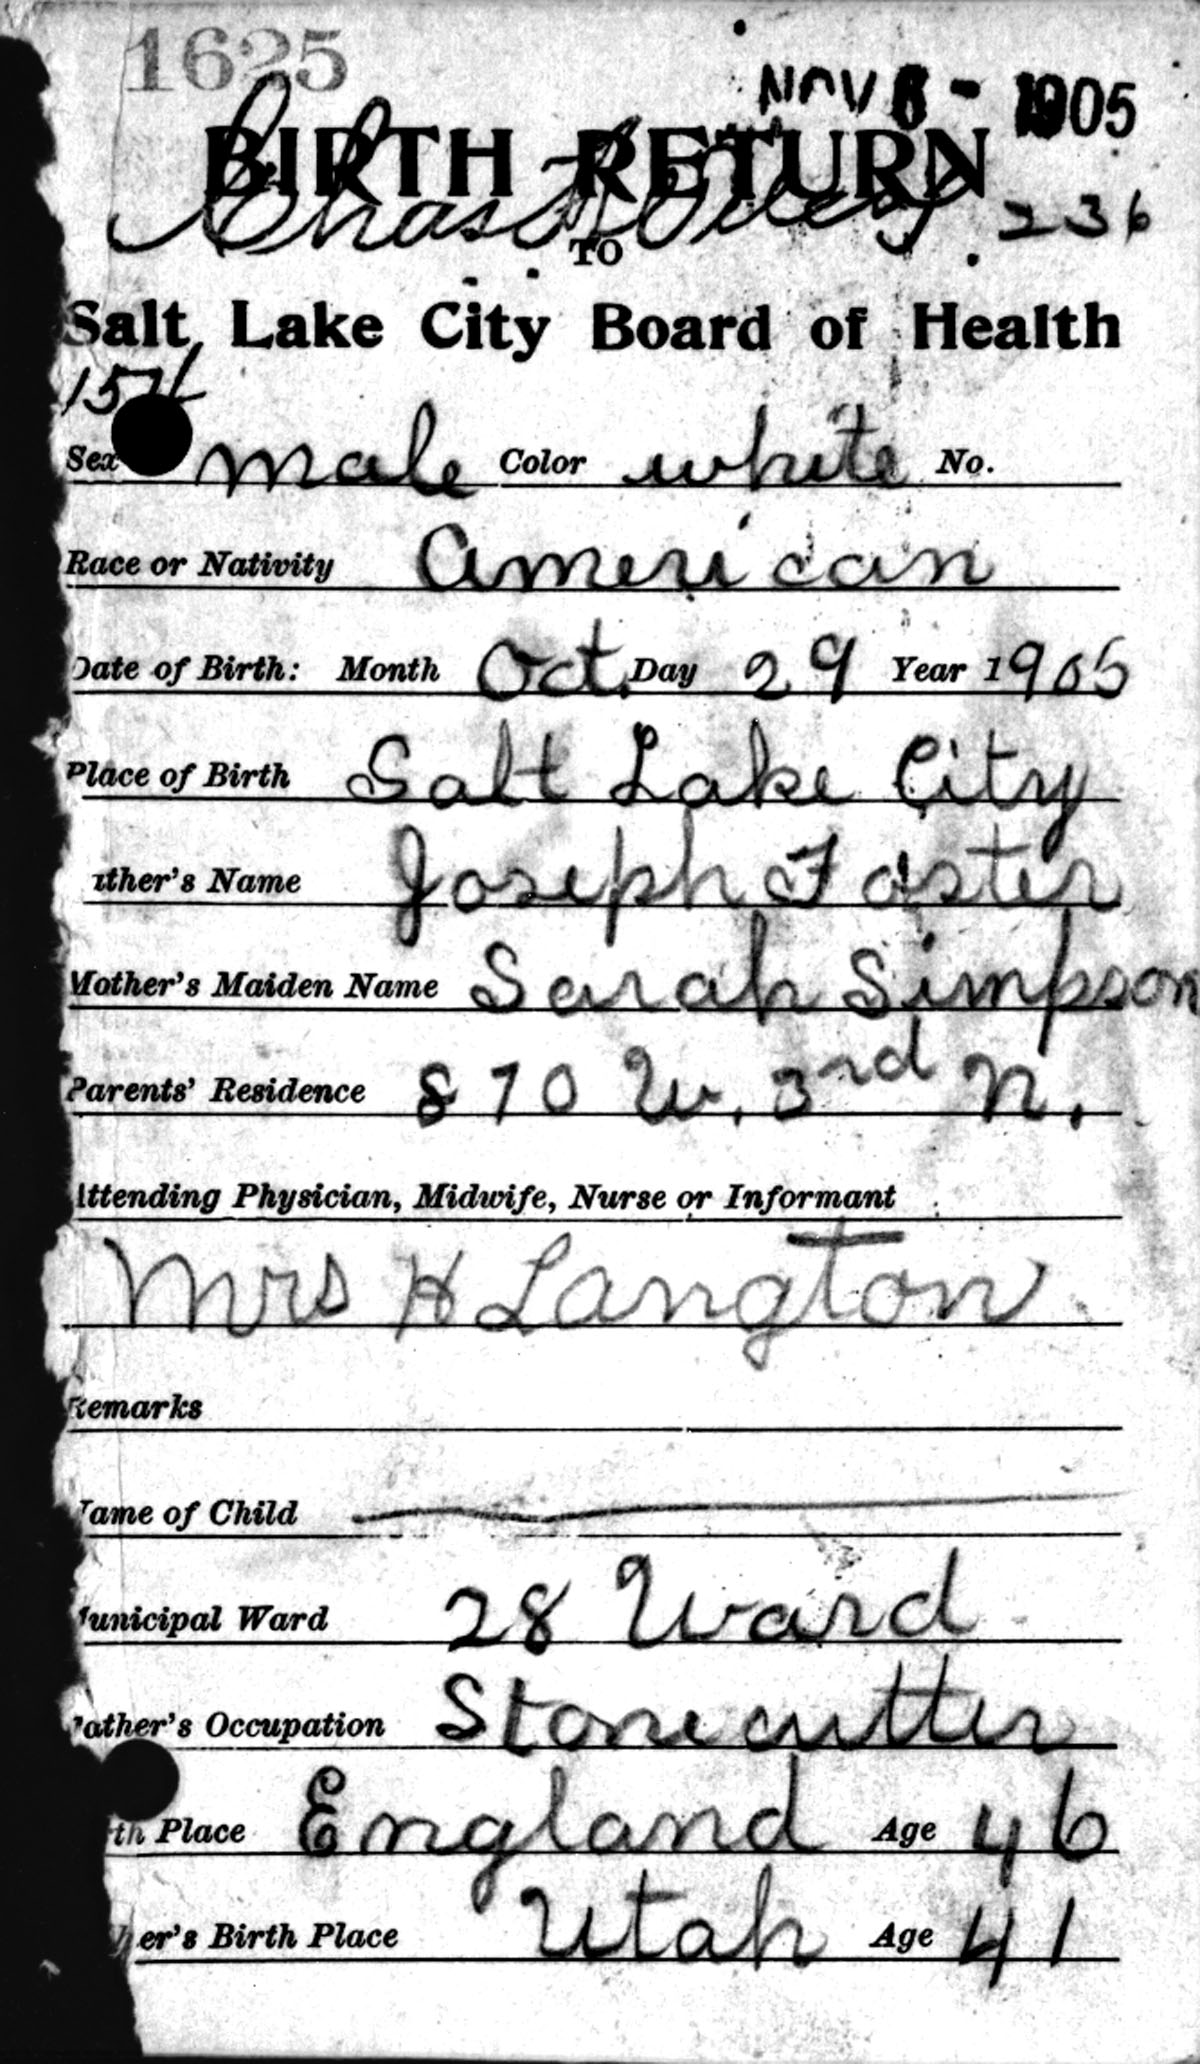 1625
NOV 6 - 1905
BIRTH RETURN
Chas
236
TO
Salt Lake City Board of Health
Sex male Color white No.
Race or Nativity American
Date of Birth: Month Oct. Day 29 Year 1905
Place of Birth Salt Lake City
ather's Name Joseph Foster
Mother's Maiden Name Sarah Simpson
Parents' Residence 870 W. 3rd N.
Attending Physician, Midwife, Nurse or Informant
Mrs H Langton
Remarks
Name of Child
Municipal Ward 28 Ward
Father's Occupation Stonecutter
th Place England Age 46
er's Birth Place Utah Age 41